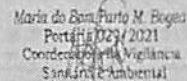 Maria do Bom Parto M. Bogea
Portaria 029/2021
Coordenadora da Vigilância
Sanitária e Ambiental